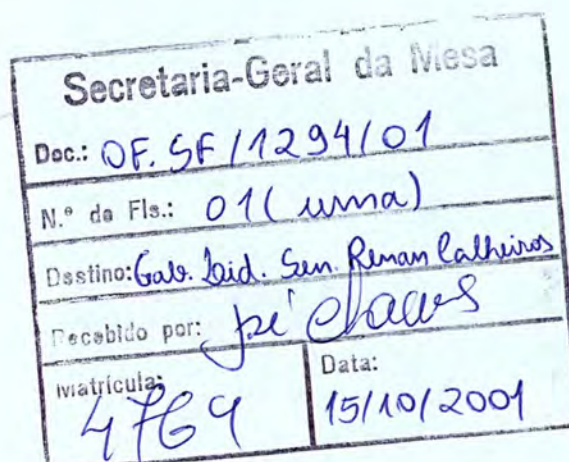 Secretaria-Geral da Mesa
Doc.: OF. SF/1294/01
N.º de Fls.: 01 (uma)
Destino: Gab. Sen. Renan Calheiros
Recebido por:
Matrícula: 4769
Data: 15/10/2001